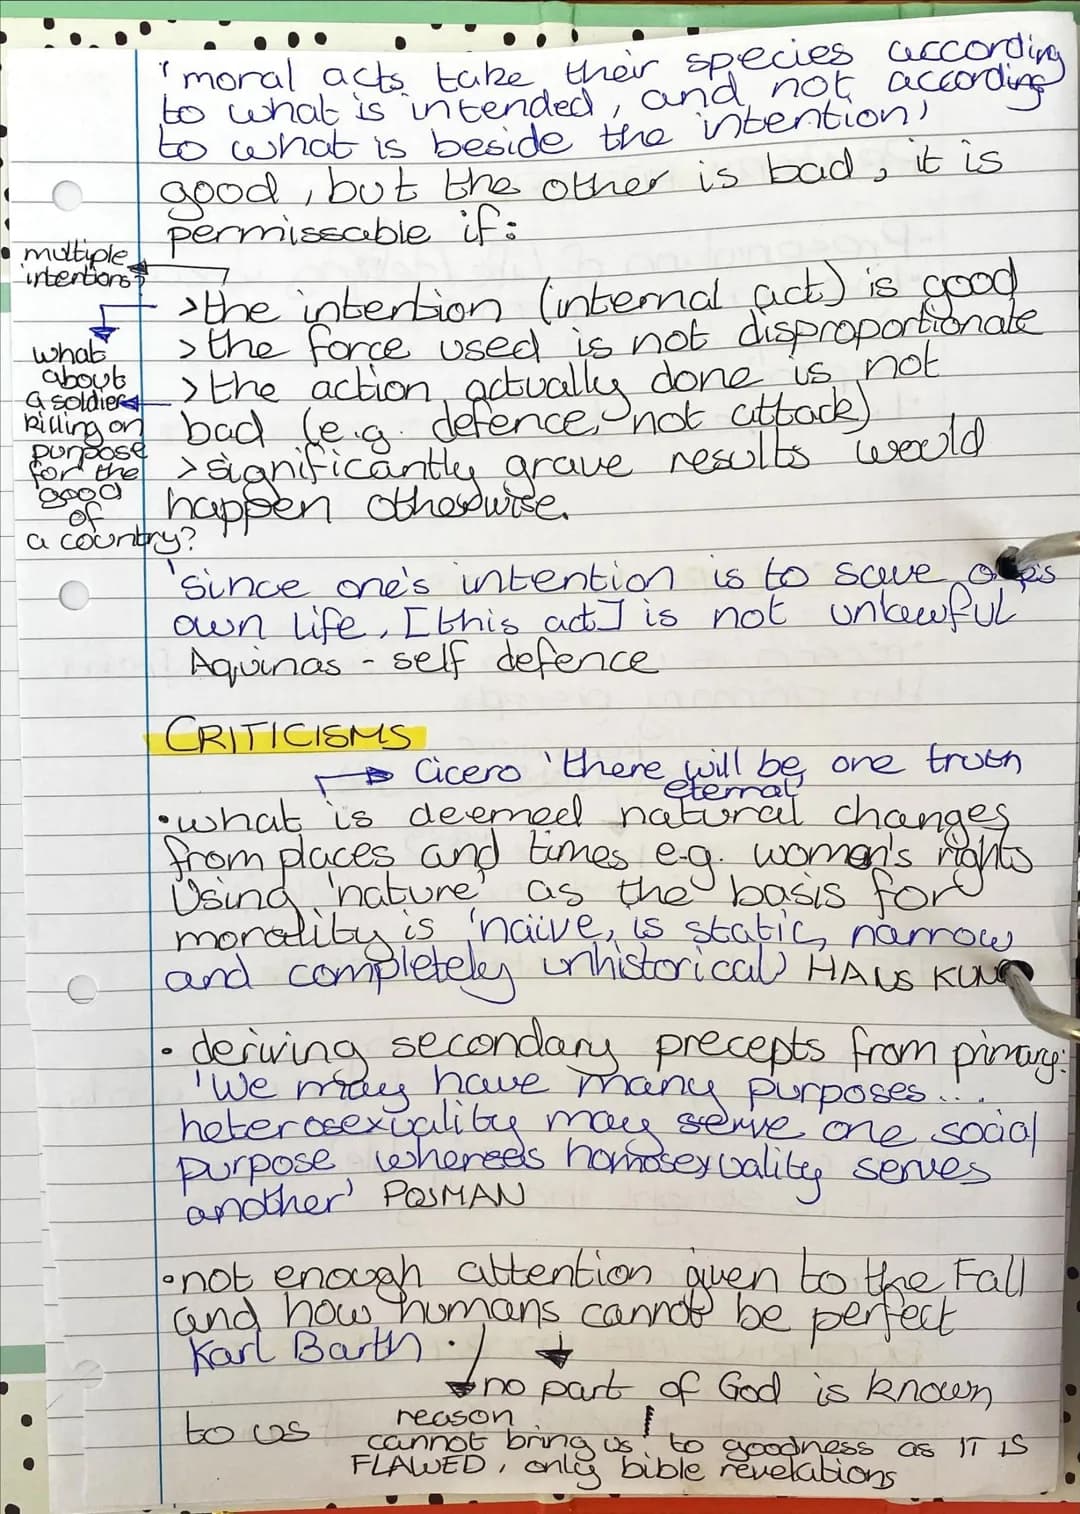 'moral acts take their species according
to what is intended, and not according
to what is beside the intention'
good, but the other is bad, it is
permissable if:
multiple
intentions?
>the intention (internal act) is good
>the force used is not disproportionate
>the action actually done is not
bad (e.g. defence, not attack)
>significantly grave results would
happen otherwise.
what
about
a soldier
killing on
purpose
for the
good
of
a country?
'since one's intention is to save one's
own life, [this act] is not unlawful
Aquinas - self defence
CRITICISMS
Cicero 'there will be one truth
eternal'
•what is deemed natural changes
from places and times e.g. women's rights
Using 'nature' as the basis for
morality is 'naive, is static, narrow
and completely unhistorical' HANS KUNG
• deriving secondary precepts from primary:
'We may have many purposes...
heterosexuality may serve one social
purpose whereas homosexuality serves
another' POSMAN
•not enough attention given to the Fall
and how humans cannot be perfect
Karl Barth.
no part of God is known
to us
reason
cannot bring us to goodness as IT IS
FLAWED, only bible revelations